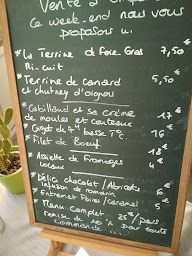 Vente à
Ce week-end nous vous
proposons :
* La Terrine de Foie-Gras 7,50€
Mi-cuit
* Terrine de canard 5,50€
et chutney d'oignons
* Cabillaud et sa crème
de moules et couteaux 17€
* Gigot de 7H basse T°C 16€
* Filet de Boeuf 18€
* Assiette de fromages
locaux 4€
* Délice chocolat/Abricots 6€
infusion de romarin
* Entremet Poires/caramel 6€
* Menu complet 25€/pers
remise de 10% pour toute
commande